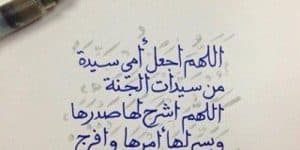 اللهم اجعل أمي سيدة
من سيدات الجنة
اللهم اشرح لها صدرها
ويسر لها أمرها وافرج